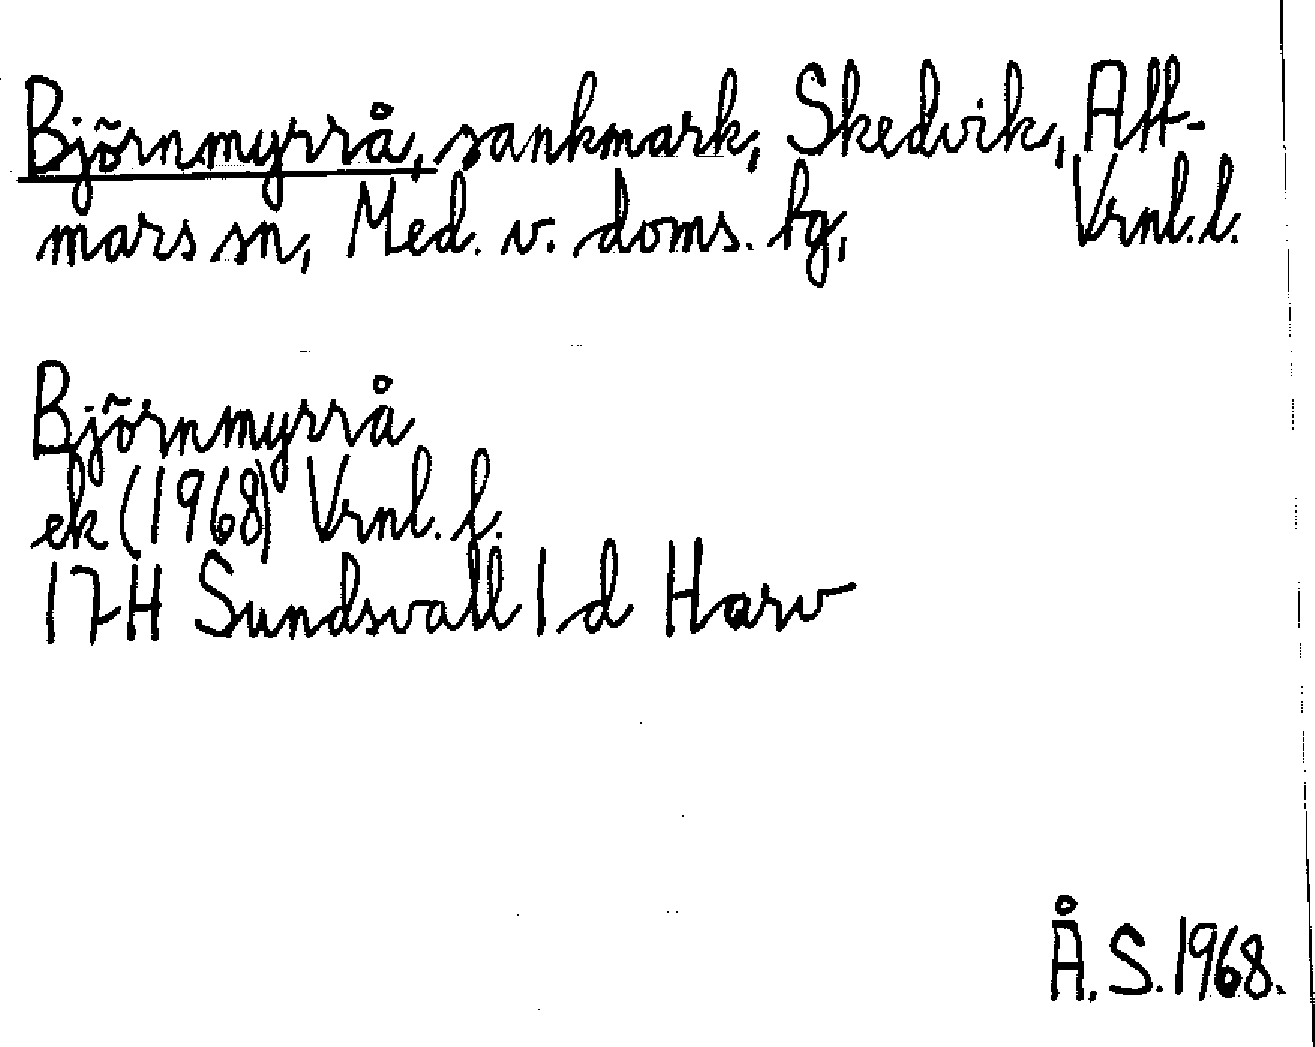 Björnmyrrå, sankmark, Skedvik, Att-
mars sn, Med. v. doms. tg, Vrnl. l.
Björnmyrrå
ek (1968) Vrnl. l.
17H Sundsvall 1 d Harv
Å. S. 1968.